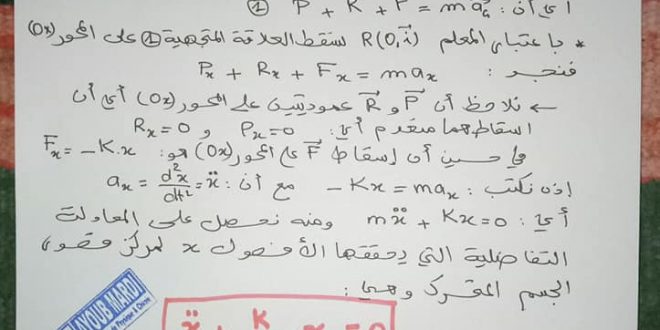 أي أن: P + R + F = m a_G ①
* باعتبار المعلم R(O,i) نسقط العلاقة المتجهية ① على المحور (Ox)
فنجد : Pₓ + Rₓ + Fₓ = maₓ
← نلاحظ أن P و R عموديتين على المحور (Ox) أي أن
إسقاطهما منعدم أي: Pₓ=0 و Rₓ=0
في حين أن إسقاط F على المحور (Ox) هو: Fₓ = -K.x
إذن نكتب : -Kx = maₓ مع أن : aₓ = d²x/dt² = ẍ
أي : mẍ + Kx = 0 ومنه نحصل على المعادلة
التفاضلية التي يحققها الأفصول x لمركز قصور
الجسم المتحرك وهي :
AYOUB MARDI
ẍ + K x = 0